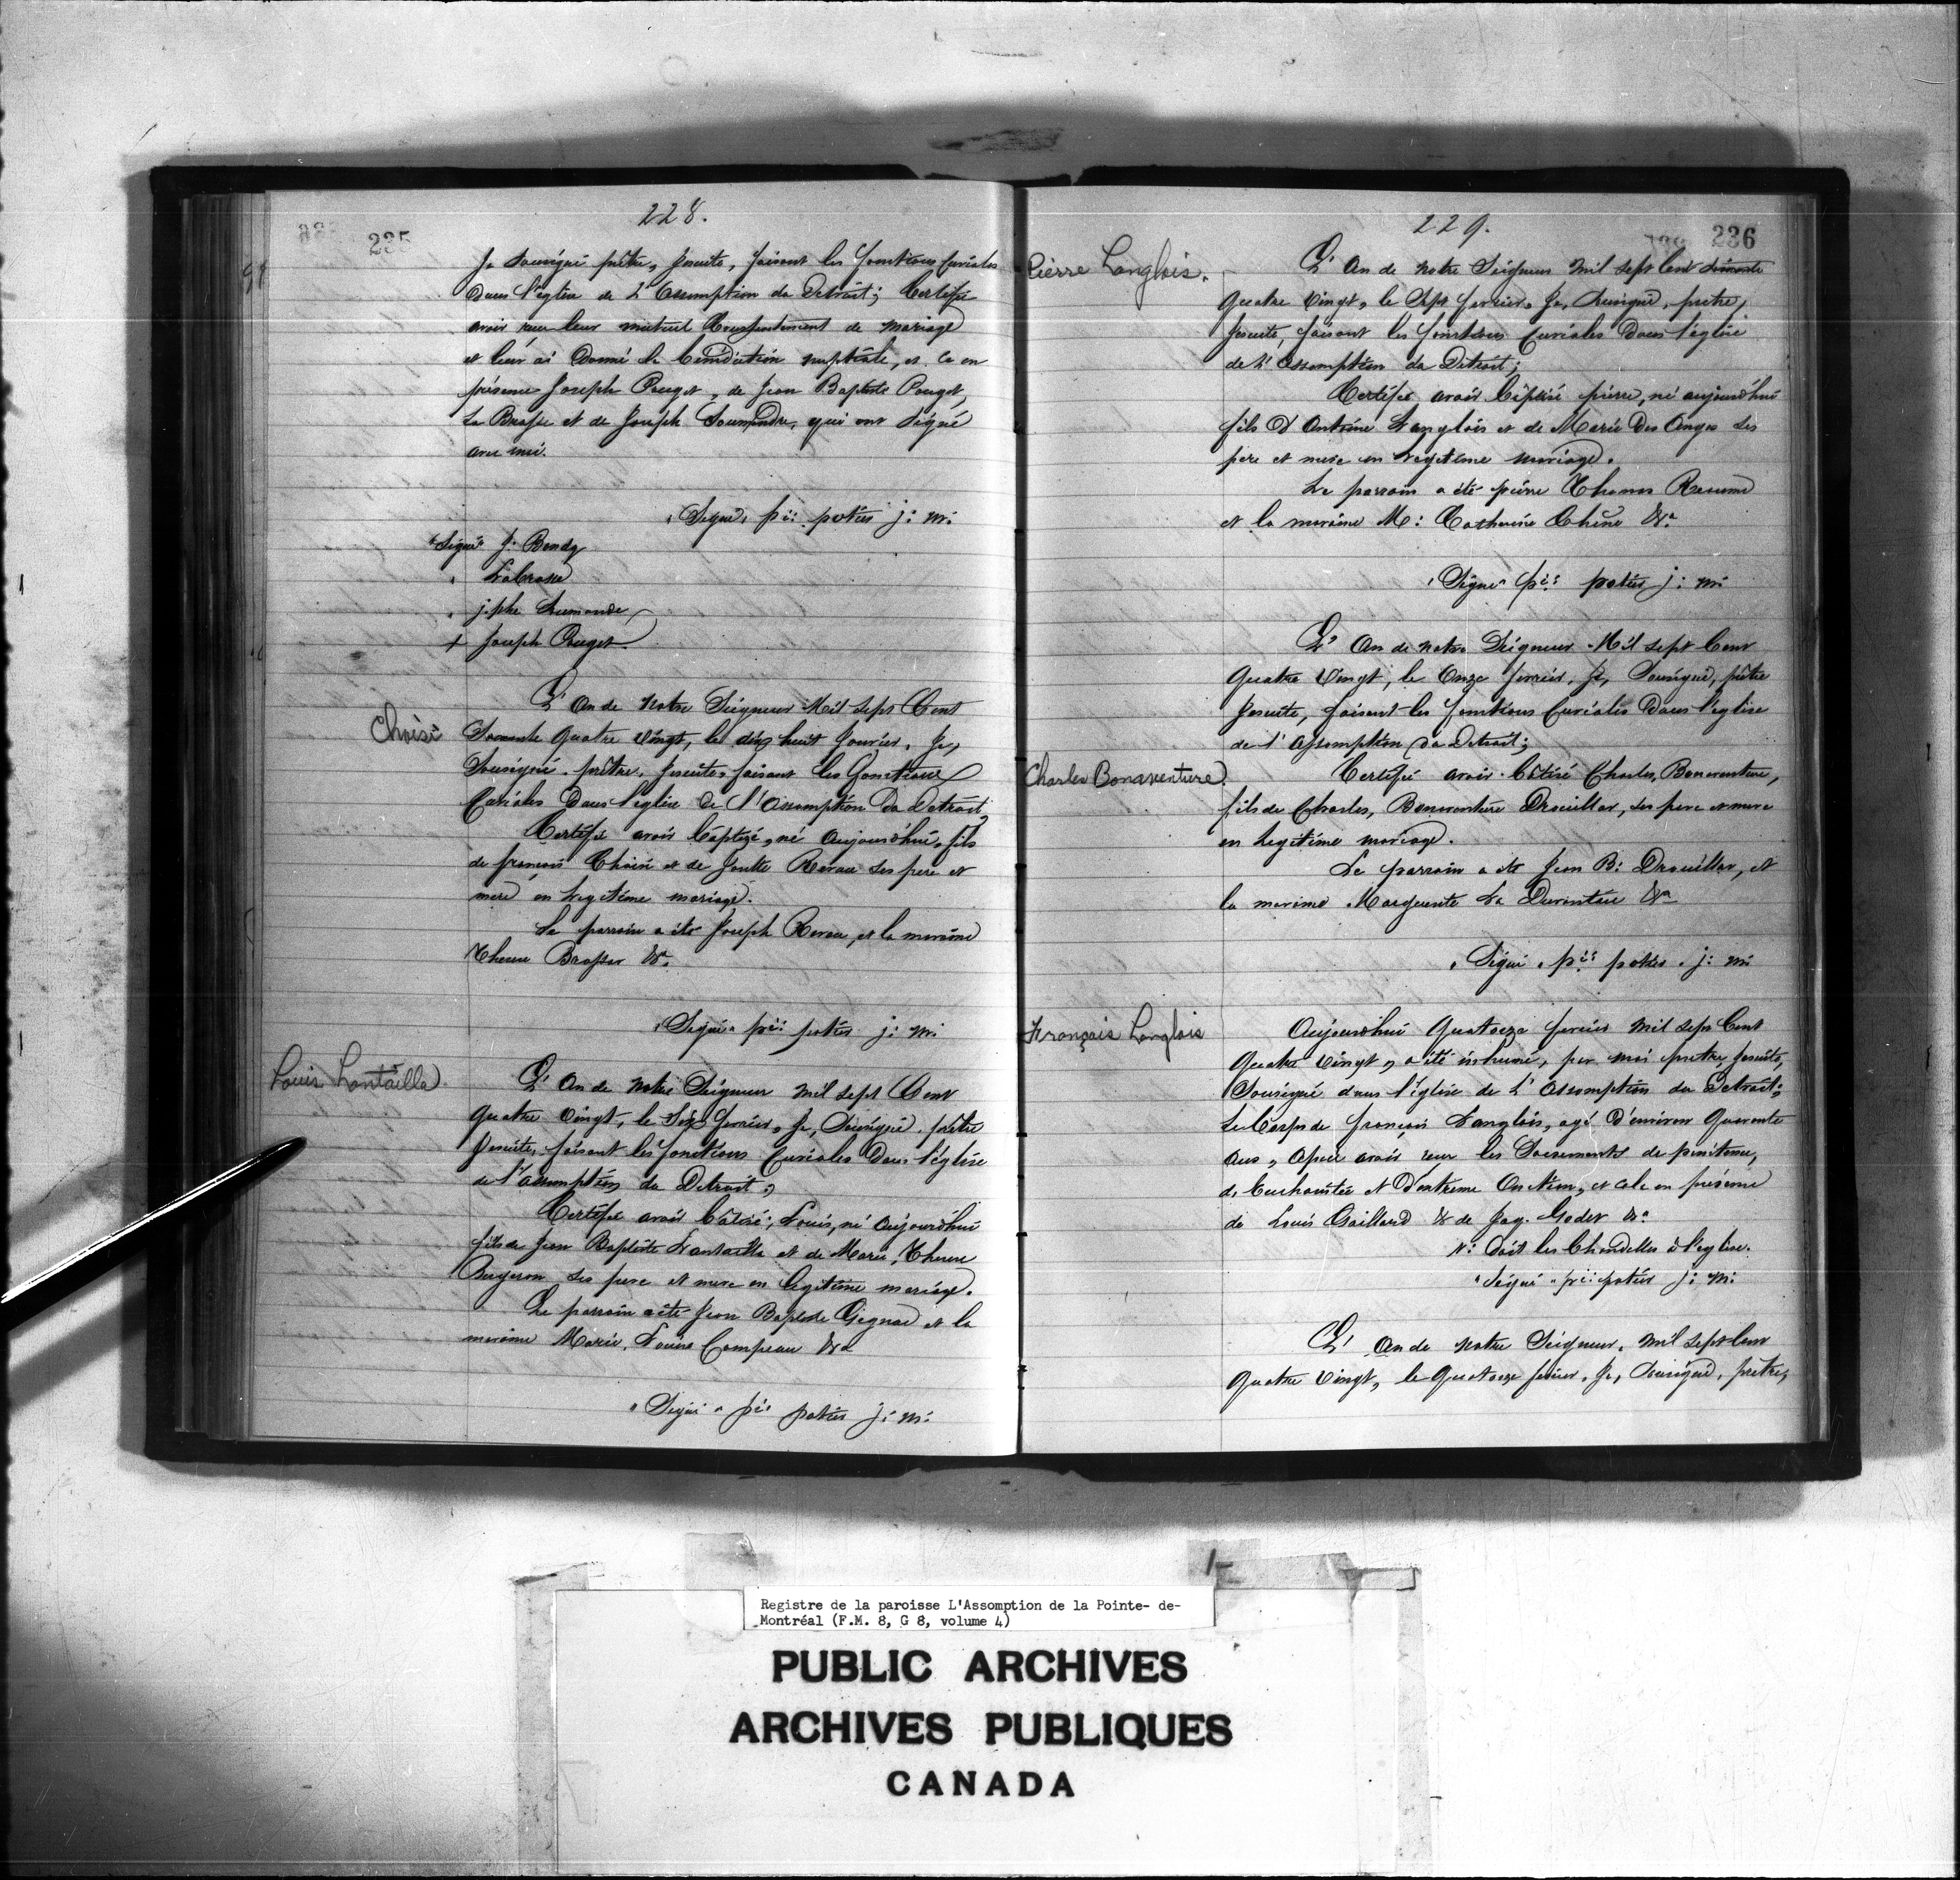 228.
235
Je Sousigné prêtre, Jesuite, faisant les fonctions Curiales
dans l'église de L'Assomption du Detroit; Certifie
avoir reçu leur mutuel Consentement de mariage
et leur ai donné la bénédiction nuptiale, et ce en
présence Joseph Pouget, de Jean Baptiste Pouget,
La Brosse et de Joseph Soumandre, qui ont Signé
avec moi.
"Signé" pre: potier j: m:
"Signé" J. Bondy
" Labrosse
" j.ph Sumande
+ Joseph Pouget.
Choisi
L'An de Notre Seigneur Mil Sept Cent
Quatre Vingt, le dix huit Janvier, Je,
Sousigné prêtre, Jesuite, faisant les Fonctions
Curiales dans l'église de l'Assomption du Detroit,
Certifie avoir baptizé, né aujourdhui, fils
de françois Choisi et de Revau ses pere et
mere en Legitime mariage.
Le parrain a été Joseph Revau, et la maraine
Therese &a.
"Signé" pre: potier j: m:
Louis Lontailla.
L'An de Notre Seigneur Mil Sept Cent
quatre Vingt, le Six fevrier, Je, Sousigné prêtre
Jesuite, faisant les fonctions Curiales dans l'église
de l'assomption du Detroit;
Certifie avoir bâtisé; Louis, né Aujourdhui
fils de Jean Baptiste Lontailla et de Marie, Therese
ses pere et mere en legitime mariage.
Le parrain a été Jean Baptiste Gignac et la
maraine Marie, Louise Compeau &a
"Signé" pre: potier j: m:
229.
236
Pierre Langlois.
L'An de Notre Seigneur Mil Sept Cent
Quatre Vingt, le Sept fevrier, Je, Sousigné, prêtre,
Jesuite, faisant les fonctions Curiales dans l'église
de L'Assomption du Detroit;
Certifie avoir bâptisé pierre, né aujourd'hui
fils D'Antoine Langlois et de Marie Des Anges ses
pere et mere en Legitime mariage.
Le parrain a été pierre
et la maraine M: Catherine Chêne &a
"Signé" pre: potier j: m:
L'An de notre Seigneur Mil Sept Cent
Quatre Vingt, le Onze fevrier, Je, Sousigné, prêtre
Jesuite, faisant les fonctions Curiales dans l'église
de l'Assomption du Detroit;
Charles Bonaventure.
Certifie avoir bâtisé Charles, Bonaventure,
fils de Charles, Bonaventure Drouillar, ses pere et mere
en Legitime mariage.
Le parrain a été Jean B: Drouillar, et
la maraine Marguerite La Durantaie &a
"Signé" pre: potier j: m:
François Langlois
Aujourdhui Quatorze fevrier Mil Sept Cent
Quatre Vingt, a été inhumé, par moi prêtre, Jesuite,
Sousigné dans l'église de L'Assomption du Detroit;
Le Corps de françois Langlois, agé d'environ Quarente
ans, après avoir reçu les Sacrements de penitence,
d'Euchaistie et d'extreme Onction, et cela en présence
de Louis Gaillard & de Jaq. Godet &a
N: Doit les Chandelles à l'eglise.
"Signé" pre: potier j: m:
L'An de Notre Seigneur, Mil Sept Cent
Quatre Vingt, le Quatorze fevrier, Je, Sousigné, prêtre,
Registre de la paroisse L'Assomption de la Pointe- de-
Montréal (F.M. 8, G 8, volume 4)
PUBLIC ARCHIVES
ARCHIVES PUBLIQUES
CANADA